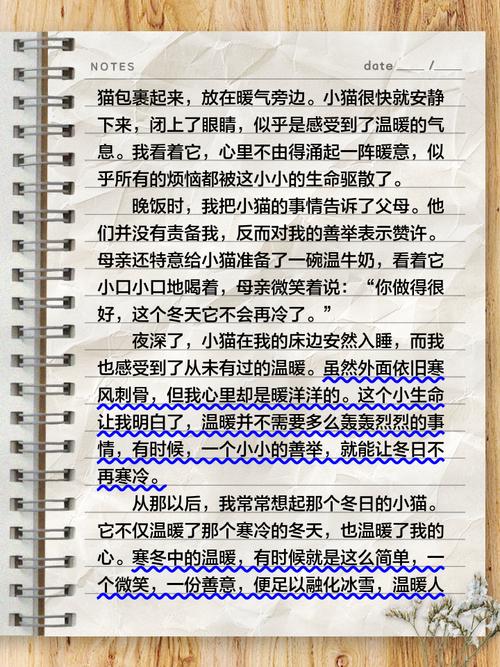 NOTES date /
猫包裹起来，放在暖气旁边。小猫很快就安静
下来，闭上了眼睛，似乎是感受到了温暖的气
息。我看着它，心里不由得涌起一阵暖意，似
乎所有的烦恼都被这小小的生命驱散了。
晚饭时，我把小猫的事情告诉了父母。他
们并没有责备我，反而对我的善举表示赞许。
母亲还特意给小猫准备了一碗温牛奶，看着它
小口小口地喝着，母亲微笑着说：“你做得很
好，这个冬天它不会再冷了。”
夜深了，小猫在我的床边安然入睡，而我
也感受到了从未有过的温暖。虽然外面依旧寒
风刺骨，但我心里却是暖洋洋的。这个小生命
让我明白了，温暖并不需要多么轰轰烈烈的事
情，有时候，一个小小的善举，就能让冬日不
再寒冷。
从那以后，我常常想起那个冬日的小猫。
它不仅温暖了那个寒冷的冬天，也温暖了我的
心。寒冬中的温暖，有时候就是这么简单，一
个微笑，一份善意，便足以融化冰雪，温暖人